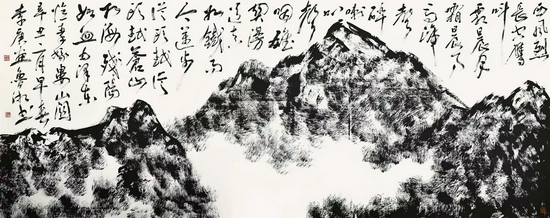 西风烈
長空雁
叫
霜晨月
霜晨月
馬蹄
聲
碎
喇叭
聲
咽雄
関漫
道真
如鐵而
今迈步
從頭越從
頭越蒼山
如海殘陽
如血毛泽东
憶秦娥婁山關
辛丑二月早春